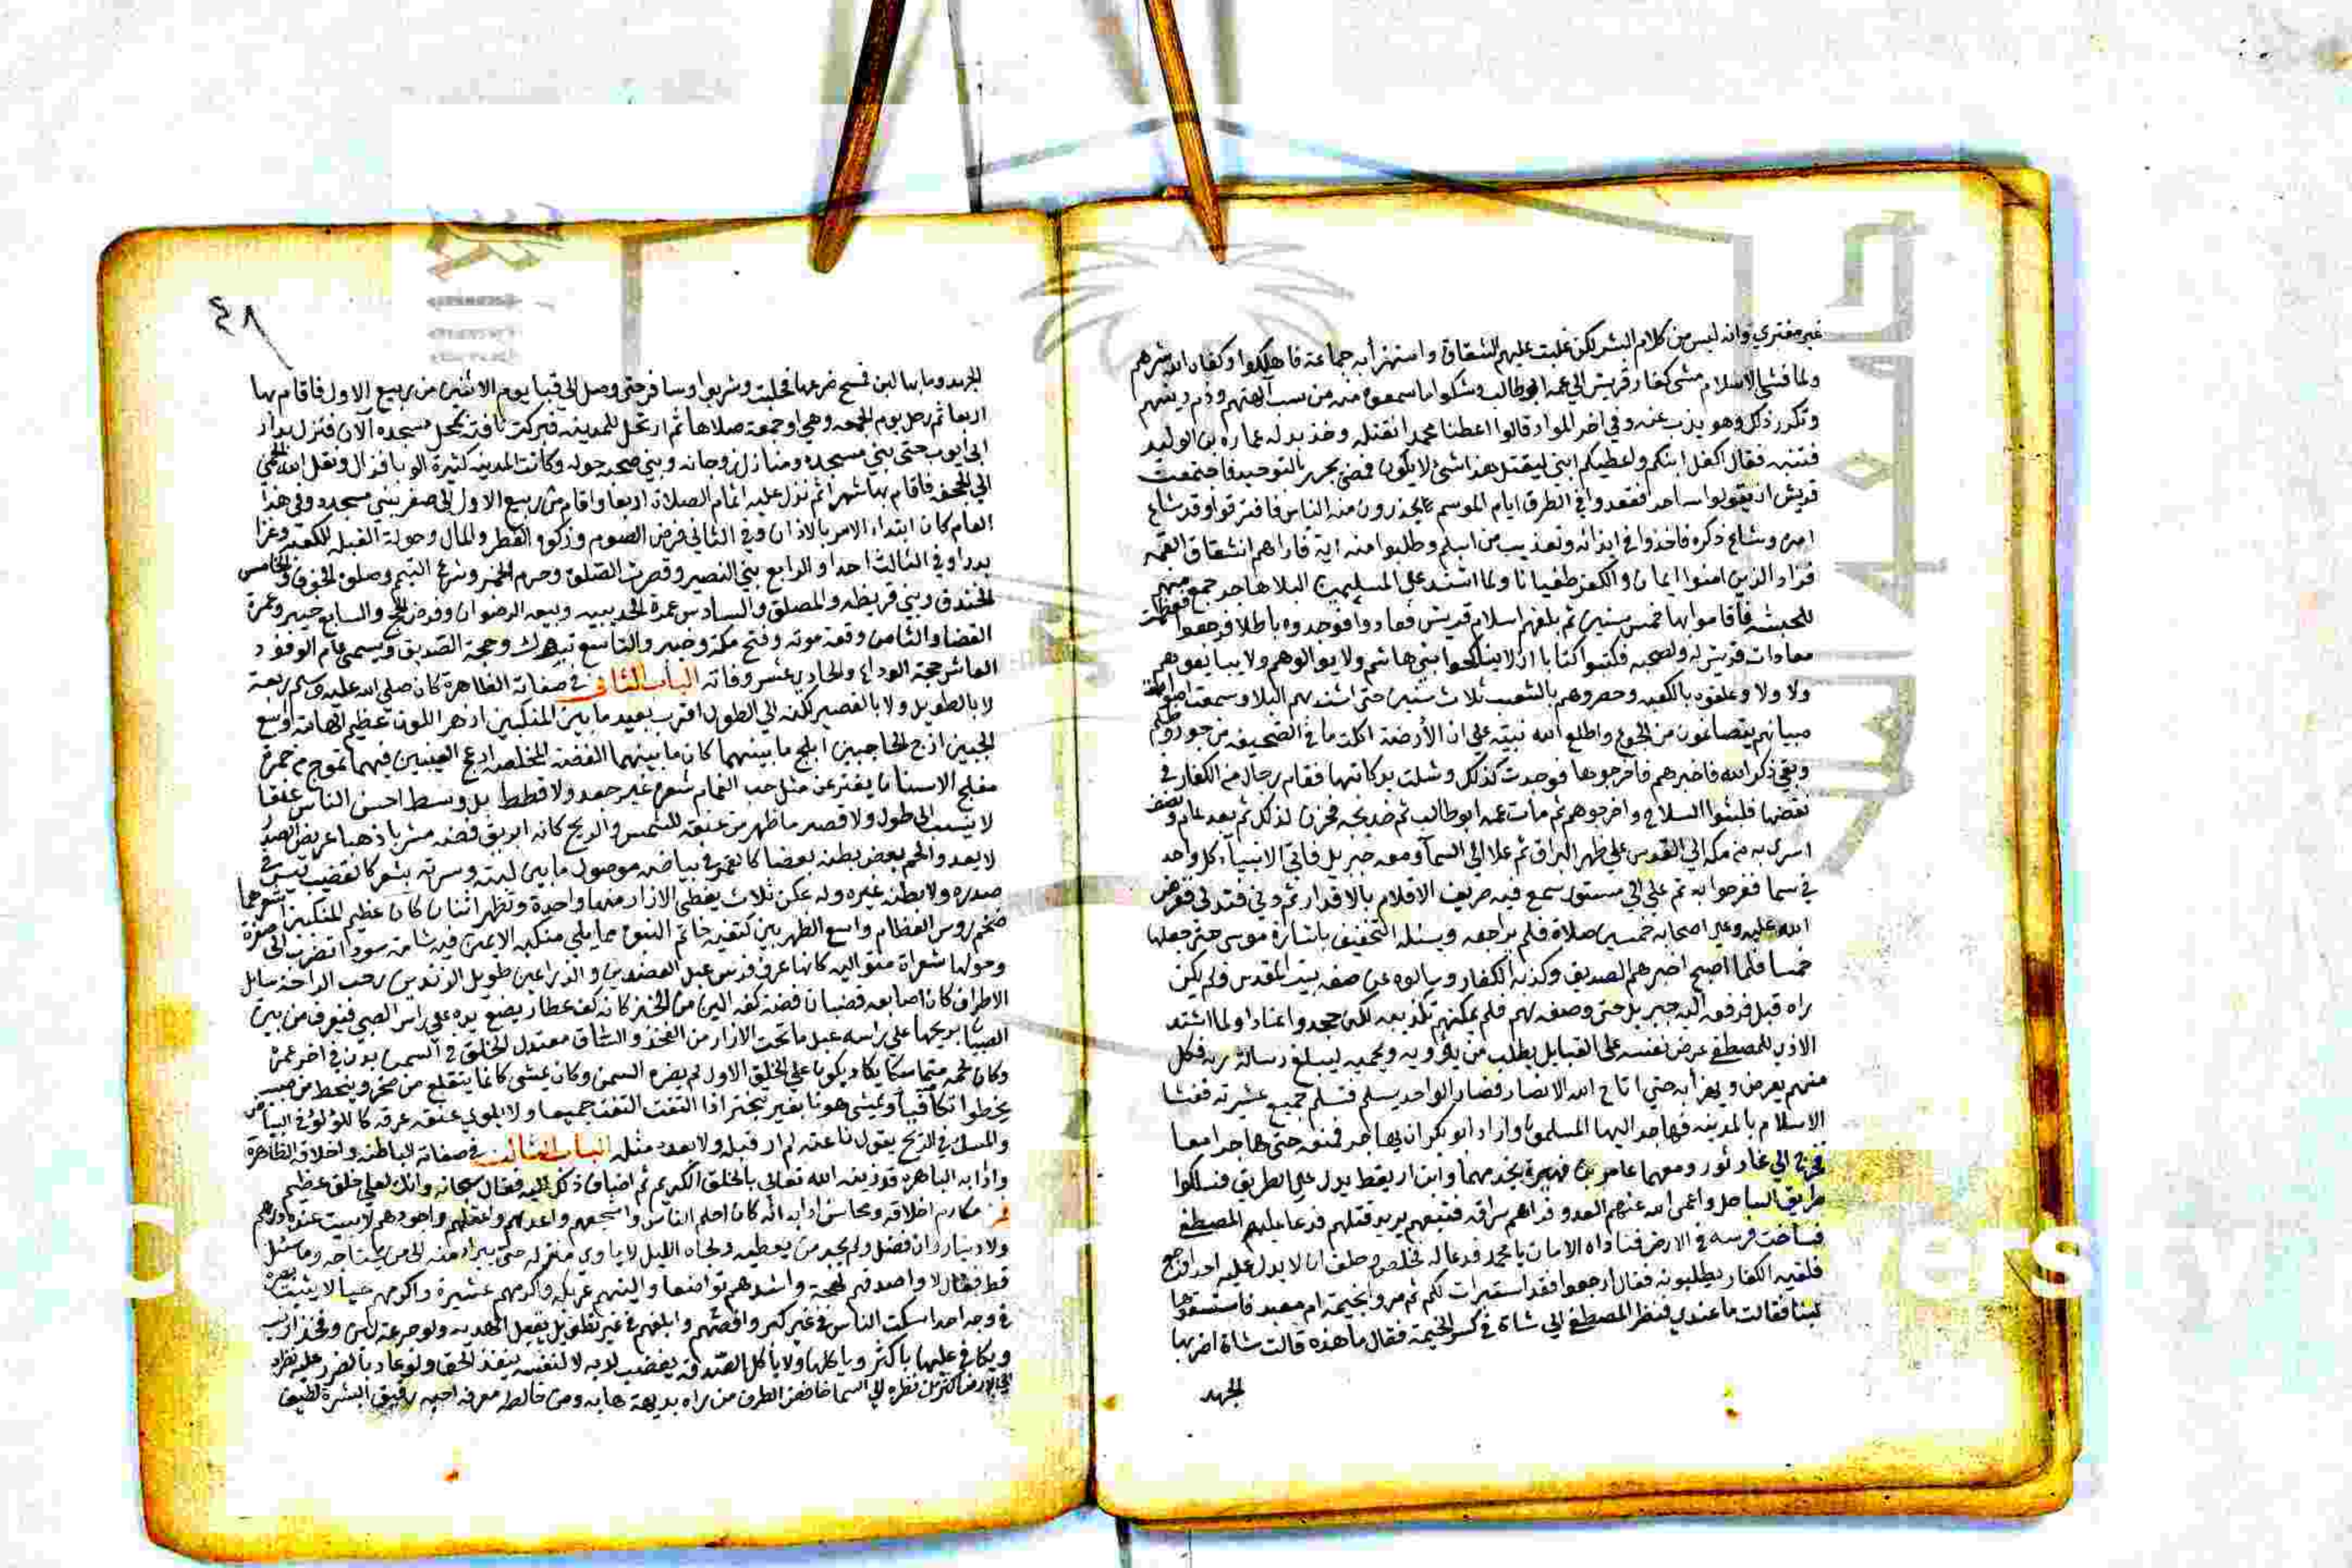 غير مفتري وانه ليس من كلام البشر لكن غلبت عليهم الشقاق واستهزأ به جماعة فاهلكوا وكفاه الله شرهم
ولما فشى الاسلام مشى كفار قريش الي عمه ابو طالب وشكوا ما سمعوه منه من سب آلهتهم وذم دينهم
وتكرر ذلك وهو يذب عنه وفي اخر المواد قالوا اعطنا محمدا نقتله وخذ بدله عماره بن الوليد
فتتنه فقال اكفل ابنكم واعطيكم ابني ليقتل هذا شئ لا يكون فمضى يجهر بالتوحيد فاجتمعت
قريش ان يقولوا ساحر فقعدوا في الطرق ايام الموسم يحذرون منه الناس فافترقوا وقد شاع
امره وشاع ذكره فاخذوا في ايذائه وتعذيب من اسلم وطلبوا منه اية فاراهم انشقاق القمر
فزاد الذين امنوا ايمانا والكفر طغيانا ولما اشتد على المسلمين البلا هاجر جمع منهم
للحبشه فاقاموا بها خمس سنين ثم بلغهم اسلام قريش فعادوا فوجدوه باطلا فرجعوا فعظمت
معادات قريش له ولصحبه فكتبوا كتابا ان لا يناكحوا بني هاشم ولا يوالوهم ولا يبايعوهم
ولا ولا وعلقوه بالكعبه وحصروهم بالشعب ثلاث سنين حتى اشتد بهم البلا وسمعت اصوات
صبيانهم يتصاغون من الجوع واطلع الله نبيه على ان الأرضة اكلت ما في الصحيفه من جور وظلم
وبقي ذكر الله فاخبرهم فاخرجوها فوجدت كذلك وشلت يد كاتبها فقام رجال من الكفار في
نقضها فلبسوا السلاح واخرجوهم ثم مات عمه ابو طالب ثم خديجه فحزن لذلك ثم بعد عام ونصف
اسري به من مكه الي القدس علي ظهر البراق ثم علا الي السمآ ومعه جبريل فاتى الانبيآء كل واحد
في سما ففرحوا به ثم علي الي مستوي سمع فيه صريف الاقلام بالاقدار ثم دني فتدلى ففرض
الله عليه وعلى اصحابه خمسين صلاة فلم يراجعه ويسئله التخفيف باشارة موسى حتى جعلها
خمسا فلما اصبح اخبرهم الصديق وكذبه الكفار وسالوه عن صفه بيت المقدس ولم يكن
راه قبل فرفعه اليه جبريل حتى وصفه لهم فلم يمكنهم تكذيبه لكن جحدوا عنادا ولما اشتد
الاذى للمصطفى عرض نفسه على القبايل يطلب من يؤويه ويحميه ليبلغ رسالة ربه فكل
منهم يعرض ويهزأ به حتى اتاح الله الانصار فصار الواحد يسلم فتسلم جميع عشيرته ففشا
الاسلام بالمدينه فهاجر اليها المسلمون واراد ابو بكر ان يهاجر فمنعه حتى هاجرا معا
فخرجا الي غار ثور ومعهما عامر بن فهيرة يخدمهما وابن اريقط يدل على الطريق فسلكوا
طريق الساحل واعمى الله عنهم العدو فراهم سراقه فتبعهم يريد قتلهم فدعا عليهم المصطفى
فساخت فرسه في الارض فناداه الامان يا محمد فدعا له فخلص وحلف ان لا يدل عليه احد فرجع
فلقيه الكفار يطلبونه فقال ارجعوا فقد استقبرات لكم ثم مروا بخيمة ام معبد فاستسقوها
لبنا فقالت ما عندي فنظر المصطفى الي شاة في كسر الخيمة فقال ما هذه قالت شاة اضر بها
الجهد
٤٨
الجهد وما بها لبن فمسح ضرعها فحلبت وشربوا وسافر حتى وصل الي قبا يوم الاثنين من ربيع الاول فاقام بها
اربعا ثم رحل يوم الجمعه وهي اول جمعة صلاها ثم ارتحل للمدينه فبركت ناقته بمحل مسجده آلان فنزل بدار
ابي ايوب حتى بني مسجده ومنازل زوجاته وبني صحبه حوله وكانت المدينه كثيرة الوبا فزال ونقل الله الحمى
الي الجحفه فاقام بها شهرا ثم نزل عليه اتمام الصلاة اربعا واقام من ربيع الاول الى صفر يبني مسجده وفي هذا
العام كان ابتداء الامر بالاذان وفي الثاني فرض الصوم وزكوة الفطر والمال وحولت القبله للكعبه وغزا
بدرا وفي الثالث احدا والرابع بني النضير وقصرت الصلوة وحرم الخمر وشرع التيمم وصلوة الخوف والخامس
الخندق وبني قريظه والمصطلق والسادس عمرة الحديبيه وبيعه الرضوان وفرض الحج والسابع خيبر وعمرة
القضا والثامن وقعة موته وفتح مكه وحنين والتاسع تبوك وحجة الصديق ويسمى عام الوفود
العاشر حجة الوداع والحادي عشر وفاته الباب الثاني في صفاته الظاهرة كان صلى الله عليه وسلم ربعة
لا بالطويل ولا بالقصير لكنه الي الطول اقرب بعيد ما بين المنكبين ازهر اللون عظيم الهامة اوسع
الجبين ازج الحاجبين ابلج ما بينهما كان ما بينهما الفضة المخلصه ادعج العينين فيهما تموج من حمرة
مفلج الاسنان يفتر عن مثل حب الغمام شعره غير جعد ولا قطط بل وسط احسن الناس عنقا
لا ينسب الى طول ولا قصر ما ظهر من عنقه للشمس والريح كانه ابريق فضه مشربا ذهبا عريض الصدر
لا يعدو الحم بعض بطنه بعضا كالقمر في بياضه موصول ما بين لبته وسرته بشعر كالقضيب ليس في
صدره ولا بطنه غيره وله عكن ثلاث يغطى الازار منها واحدة وتظهر اثنتان كان عظيم المنكبين اشعرهما
ضخم روس العظام واسع الظهر بين كتفيه خاتم النبوه مما يلي منكبه الايمن فيه شامه سودا تضرب الى صفرة
وحولها شعرات متواليه كانها عرف فرس عبل العضدين والذراعين طويل الزندين رحب الراحة سايل
الاطراف كان اصابعه قضبان فضة كفه الين من الخز كانه كف عطار يضع يده علي راس الصبي فيعرف من بين
الصبيان بريحها علي راسه عبل ما تحت الازار من الفخذ والساق معتدل الخلق في السمن بدن في اخر عمره
وكان لحمه متماسكا يكاد يكون علي الخلق الاول لم يضره السمن وكان يمشى كانما يتقلع من صخر وينحط من صبب
يخطوا تكافيا ويمشى هونا بغير تبختر اذا التفت التفت جميعا ولا يلوي عنقه عرقه كاللؤلؤ في البياض
والمسك في الريح يقول ناعته لم ار قبله ولا بعده مثله الباب الثالث في صفاته الباطنه واخلاقه الظاهرة
وادابه الباهره قد زينه الله تعالى بالخلق الكريم ثم اضاف ذلك اليه فقال سبحانه وانك لعلى خلق عظيم
فمن مكارم اخلاقه ومحاسن ادابه انه كان احلم الناس واشجعهم واعدلهم واعقلهم واجودهم لا يبيت عنده درهم
ولا دينار وان فضل ولم يجد من يعطيه وفجاه الليل لا ياوى منزله حتى يبرا منه الى من يحتاجه وما سئل
قط فقال لا واصدقهم لهجة واشدهم تواضعا والينهم عريكه واكرمهم عشيرة واكرمهم حيا لا يثبت بصره
في وجه احد اسكت الناس في غير كبر وافصحهم وابلغهم في غير تطويل يقبل الهديه ولو جرعة لبن وفخذ ارنب
ويكافي عليها باكثر وياكلها ولا ياكل الصدقه يغضب لربه لا لنفسه ينفذ الحق ولو عاد بالضرر عليه نظره
الى الارض اكثر من نظره الي السما خافض الطرف من راه بديهة هابه ومن خالطه معرفه احبه رقيق البشرة لطيف